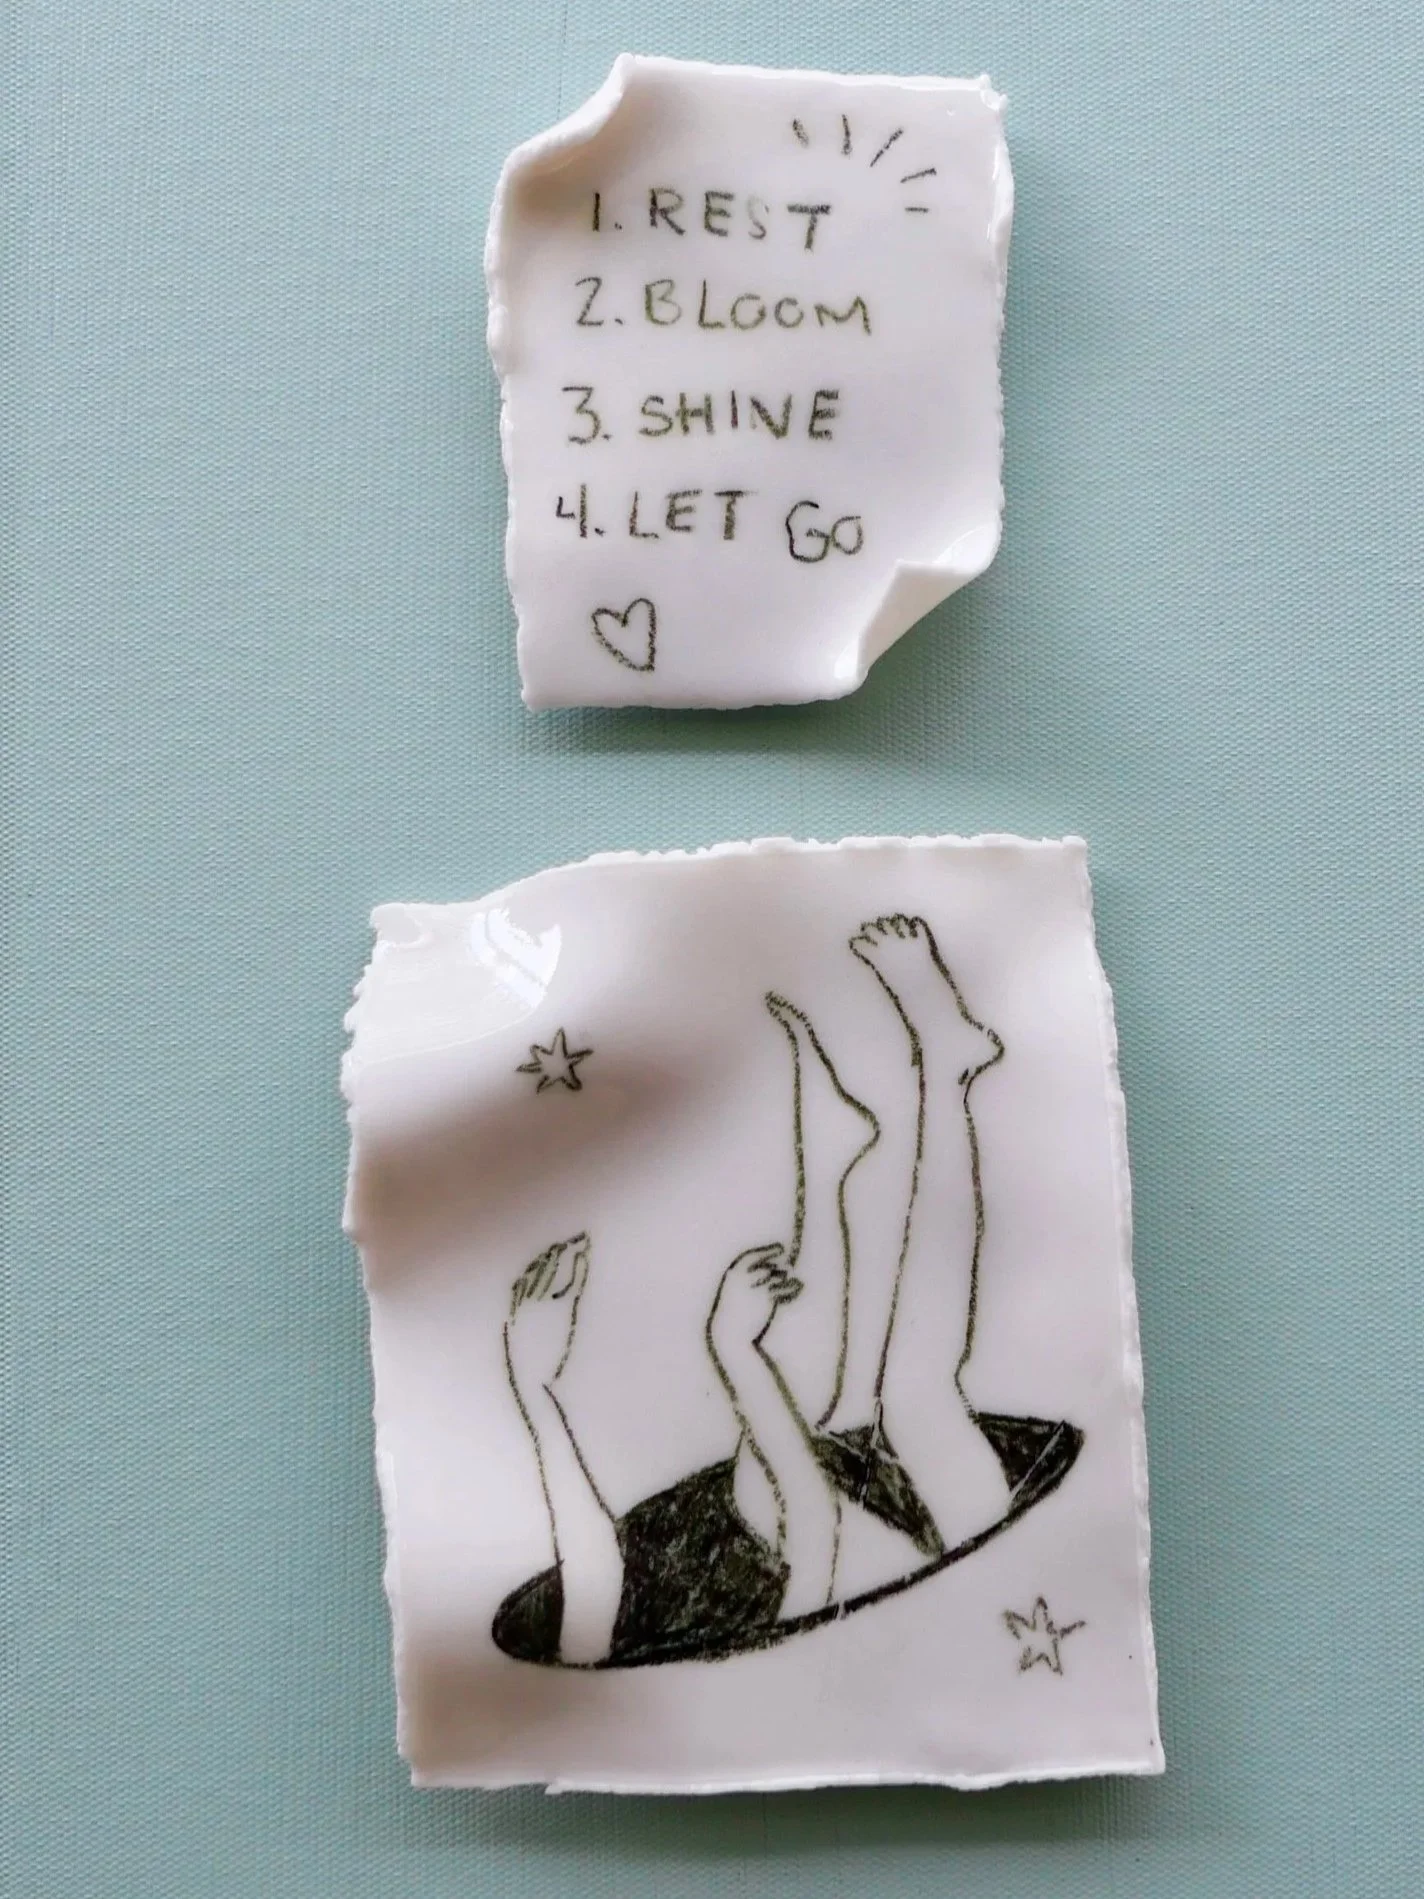 1. REST
2. BLOOM
3. SHINE
4. LET GO